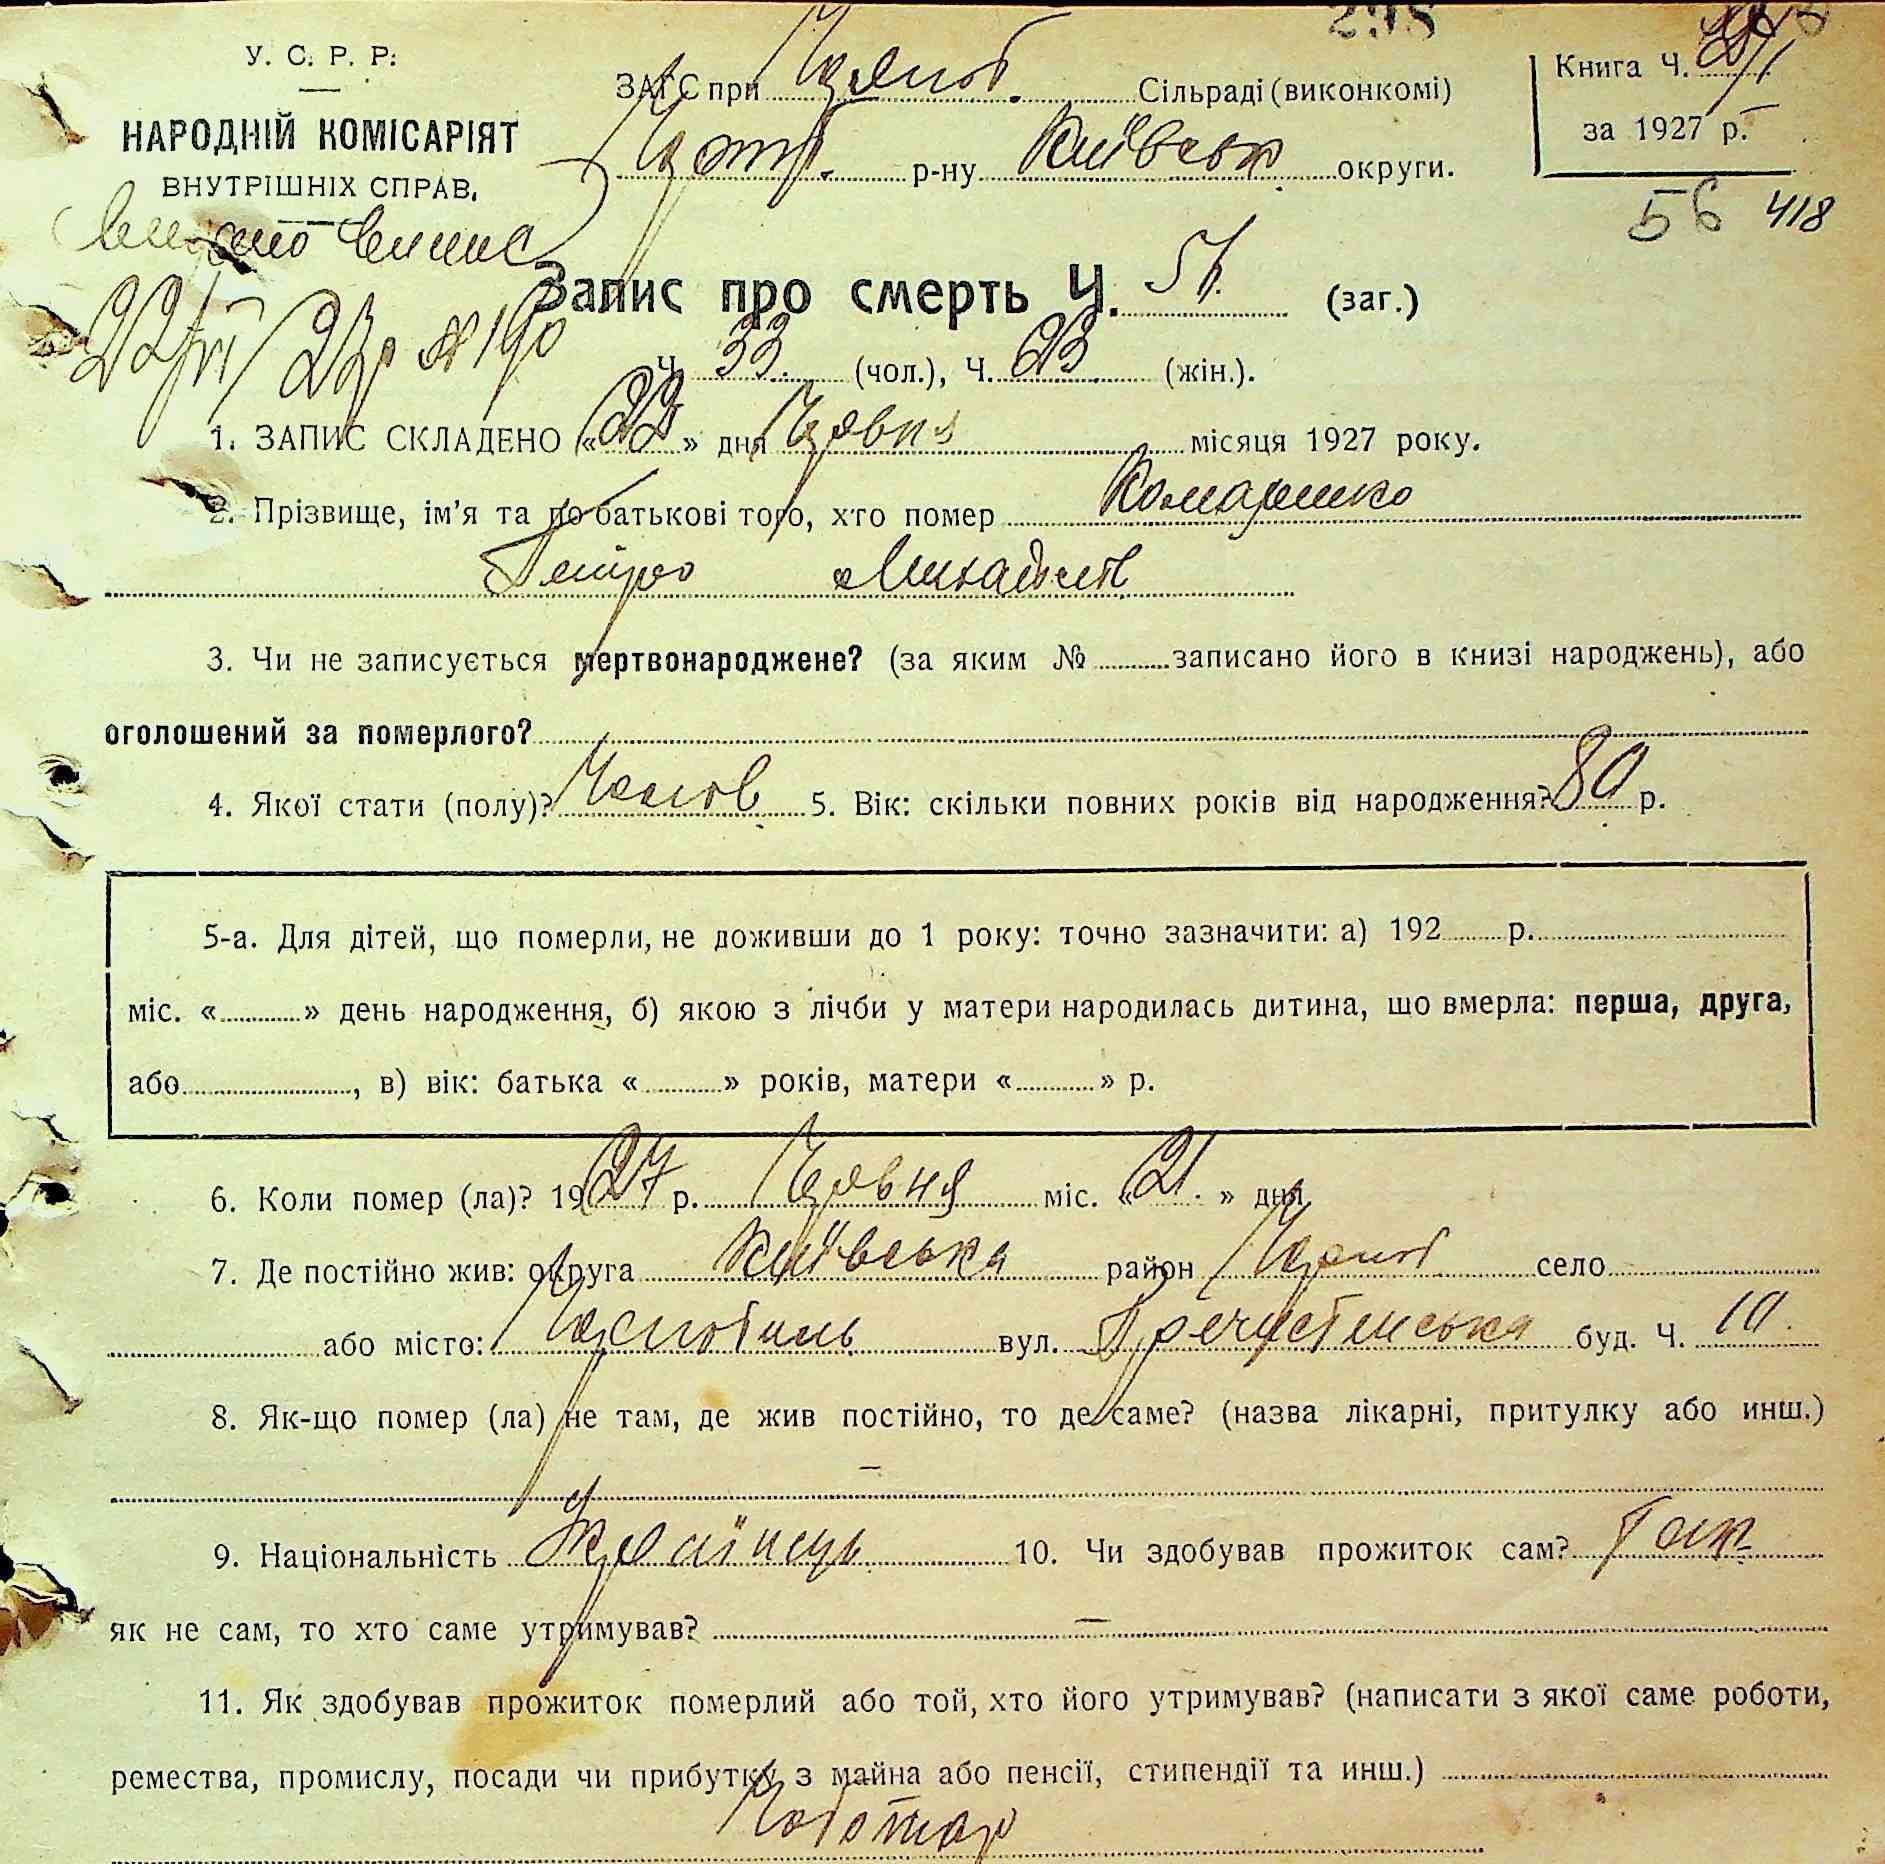 298
У. С. Р. Р.
НАРОДНІЙ КОМІСАРІЯТ
ВНУТРІШНІХ СПРАВ.
ЗАГС при Чорноб. Сільраді (виконкомі)
р-ну Київськ округи.
Книга Ч.
за 1927 р.
56 418
видано випис
22/VI 27р № 190
Запис про смерть Ч. 56 (заг.)
Ч. 33 (чол.), Ч. 23 (жін.).
1. ЗАПИС СКЛАДЕНО «22» дня Червня місяця 1927 року.
2. Прізвище, ім'я та по батькові того, хто помер
Петро
3. Чи не записується мертвонароджене? (за яким № записано його в книзі народжень), або
оголошений за померлого?
4. Якої стати (полу)? Чолов 5. Вік: скільки повних років від народження? 80 р.
5-а. Для дітей, що померли, не доживши до 1 року: точно зазначити: а) 192 р.
міс. « » день народження, б) якою з лічби у матери народилась дитина, що вмерла: перша, друга,
або , в) вік: батька « » років, матери « » р.
6. Коли помер (ла)? 1927 р. Червня міс. «21» дня
7. Де постійно жив: округа Київська район Чорноб село
або місто: Чорнобиль вул. Пречистенська буд. Ч. 10.
8. Як-що помер (ла) не там, де жив постійно, то де саме? (назва лікарні, притулку або инш.)
—
9. Національність Українець 10. Чи здобував прожиток сам? Так
як не сам, то хто саме утримував? —
11. Як здобував прожиток померлий або той, хто його утримував? (написати з якої саме роботи,
ремества, промислу, посади чи прибутку з майна або пенсії, стипендії та инш.)
Чоботар